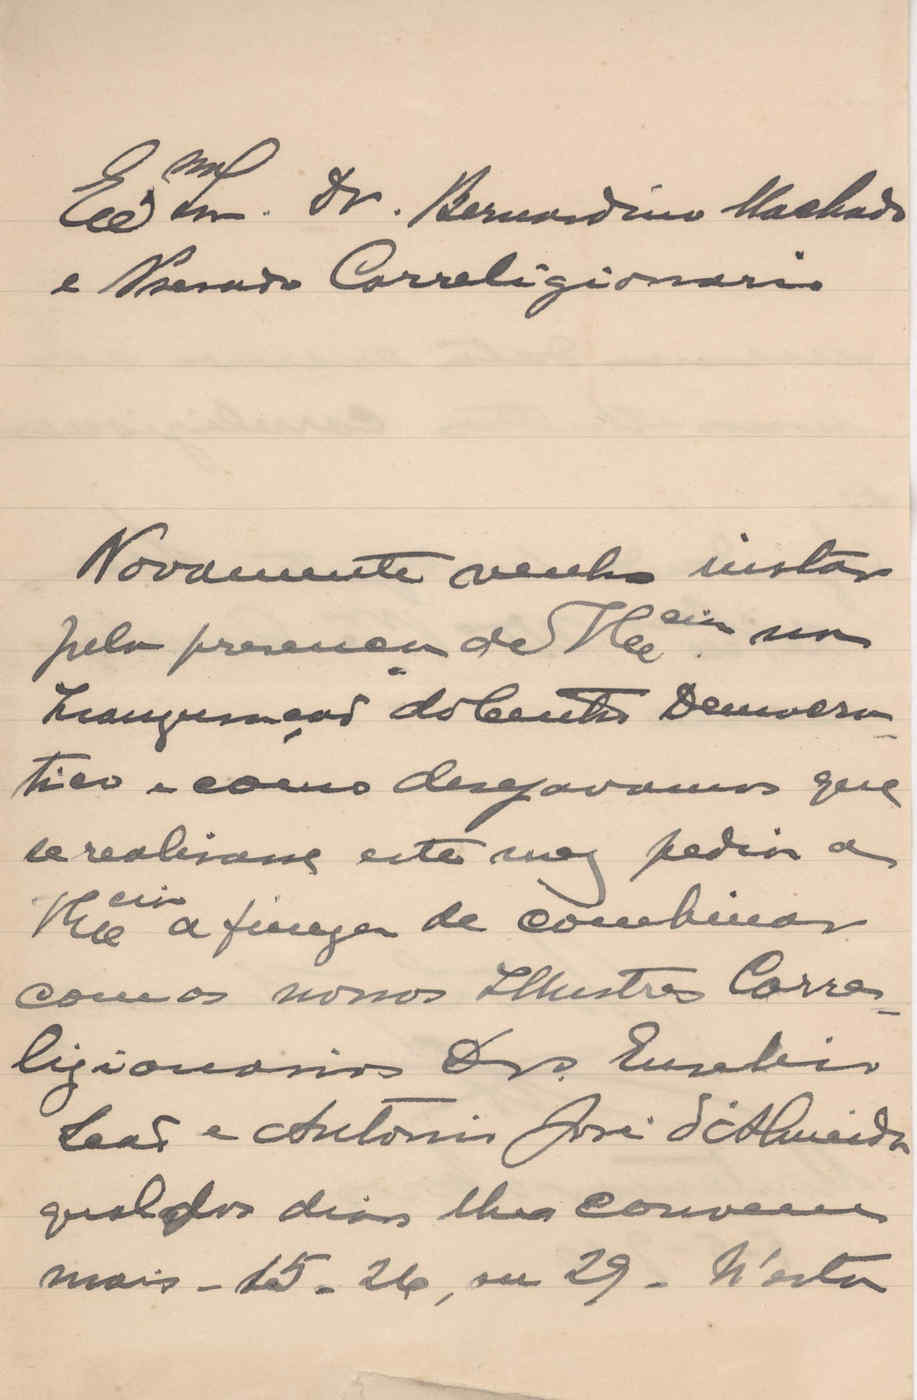 Exmo Snr. Dr. Bernardino Machado
e Presado Correligionario
Novamente venho instar
pela presença de V Excia na
Inauguração do Centro Democra-
tico e como desejavamos que
se realisasse este mez pedia a
V Excia a fineza de combinar
com os nossos Illustres Corre-
ligionarios Drs. Eusebio
Leão e Antonio José d'Almeida
qual dos dias lhes convem
mais - 15 - 26, ou 29 - N'esta